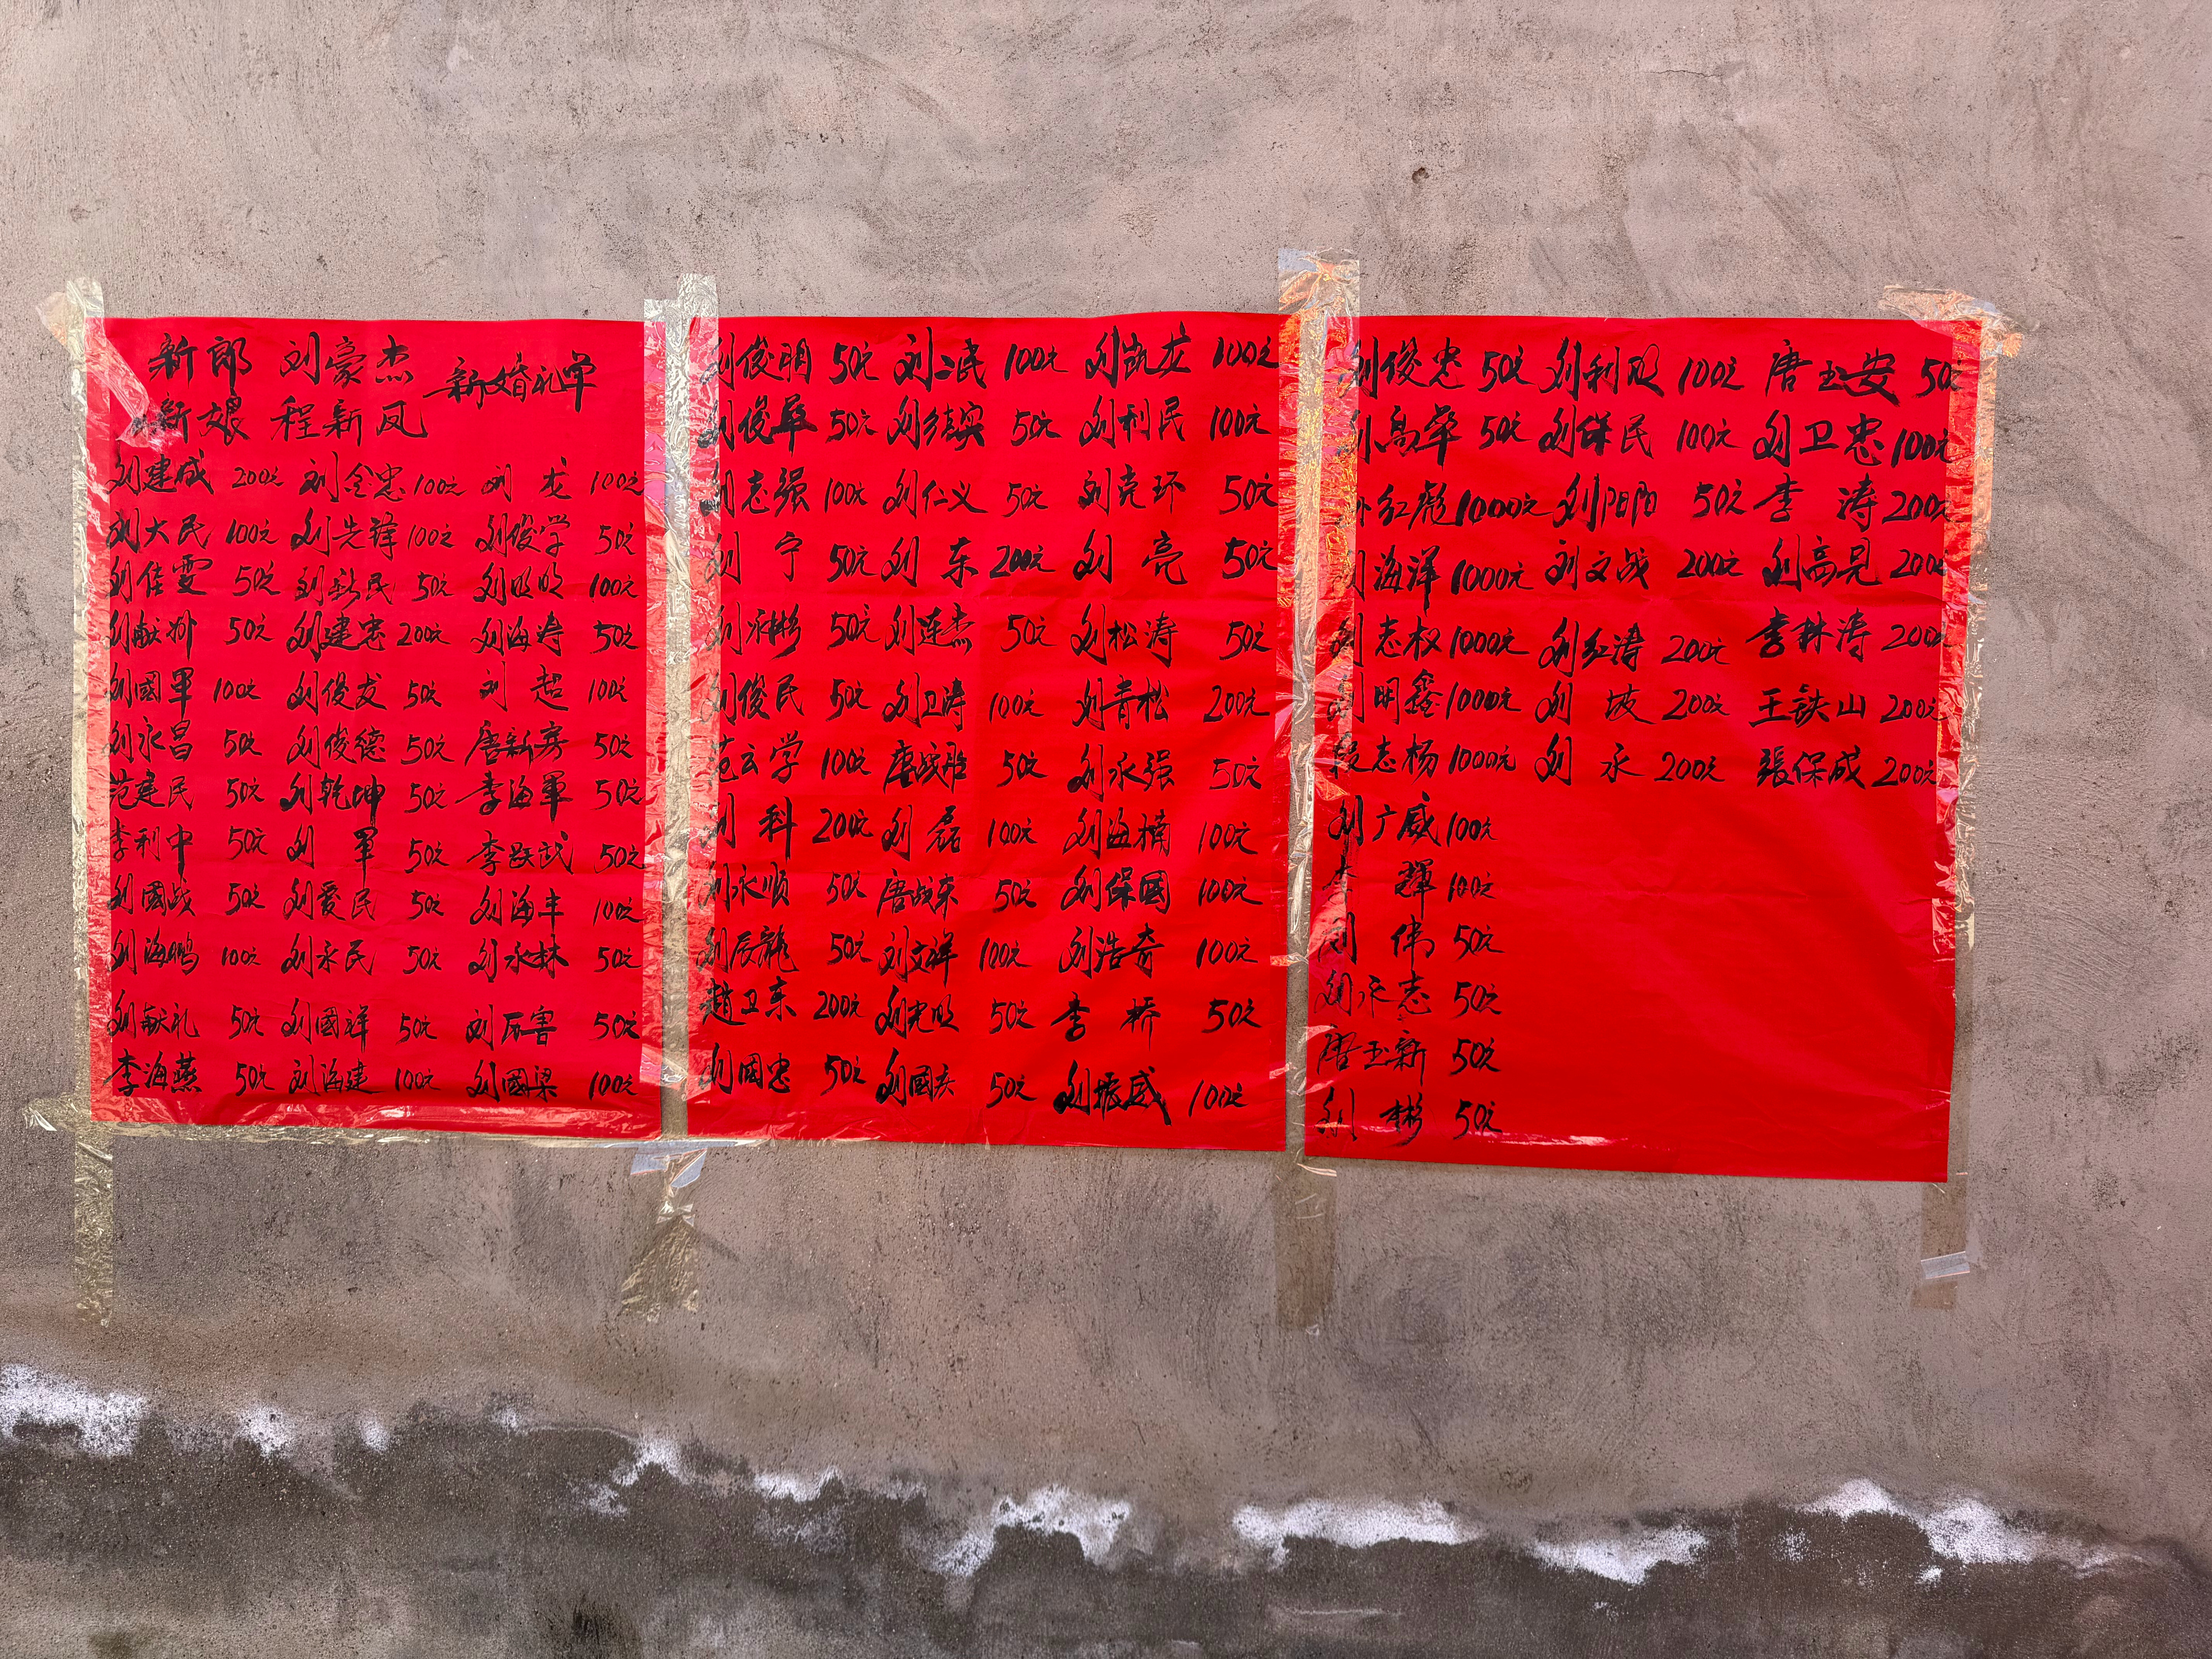 新郎 刘豪杰 新婚礼单
新娘 程新凤
刘建成 200元 刘金忠 100元 刘龙 100元
刘大民 100元 刘先锋 100元 刘俊学 50元
刘佳雯 50元 刘新民 50元 刘明明 100元
刘献州 50元 刘建忠 200元 刘海涛 50元
刘國軍 100元 刘俊友 50元 刘超 100元
刘永昌 50元 刘俊德 50元 唐新房 50元
范建民 50元 刘乾坤 50元 李海軍 50元
李利中 50元 刘軍 50元 李跃武 50元
刘國战 50元 刘爱民 50元 刘海丰 100元
刘海鹏 100元 刘永民 50元 刘永林 50元
刘献礼 50元 刘國祥 50元 刘 50元
李海燕 50元 刘海建 100元 刘國梁 100元
刘俊明 50元 刘二民 100元 刘凯龙 100元
刘俊華 50元 刘 50元 刘利民 100元
刘志强 100元 刘仁义 50元 刘克环 50元
刘宁 50元 刘东 200元 刘亮 50元
刘永彬 50元 刘连杰 50元 刘松涛 50元
刘俊民 50元 刘卫涛 100元 刘青松 200元
范云学 100元 唐战胜 50元 刘永强 50元
刘科 200元 刘磊 100元 刘海楠 100元
刘永顺 50元 唐战东 50元 刘保國 100元
刘辰龍 50元 刘文祥 100元 刘浩奇 100元
趙卫东 200元 刘光明 50元 李桥 50元
刘國忠 50元 刘國庆 50元 刘振威 100元
刘俊忠 50元 刘利 100元 唐玉安 50元
孙高華 50元 刘保民 100元 刘卫忠 100元
孙红彪 1000元 刘阳阳 50元 李涛 200元
刘海洋 1000元 刘文战 200元 刘高见 200元
刘志权 1000元 刘红涛 200元 李林涛 200元
刘明鑫 1000元 刘坡 200元 王铁山 200元
段志杨 1000元 刘永 200元 張保成 200元
刘广威 100元
李輝 100元
刘伟 50元
刘永志 50元
唐玉新 50元
刘彬 50元